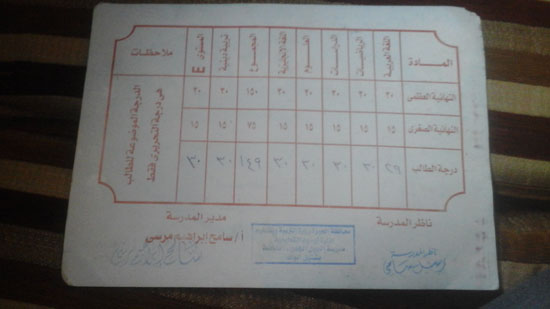 المـــادة | اللغة العربية | الرياضيات | الدراسات | العلوم | اللغة الإنجليزية | المجموع | تربية دينية | المستوى E | ملاحظات
النهائية العظمى | ٣٠ | ٣٠ | ٣٠ | ٣٠ | ٣٠ | ١٥٠ | ٣٠ | ٣٠ | هى درجة التحريرى فقط
النهائية الصغرى | ١٥ | ١٥ | ١٥ | ١٥ | ١٥ | ٧٥ | ١٥ | ١٥ | الدرجة الموضوعة للطالب
درجة الطالب | ٢٩ | ٣٠ | ٣٠ | ٣٠ | ٣٠ | ١٤٩ | ٣٠ | ٣٠
ناظر المدرسة
مدير المدرسة
أ/ سامح ابراهيم مرسى
ناظر مدرسة